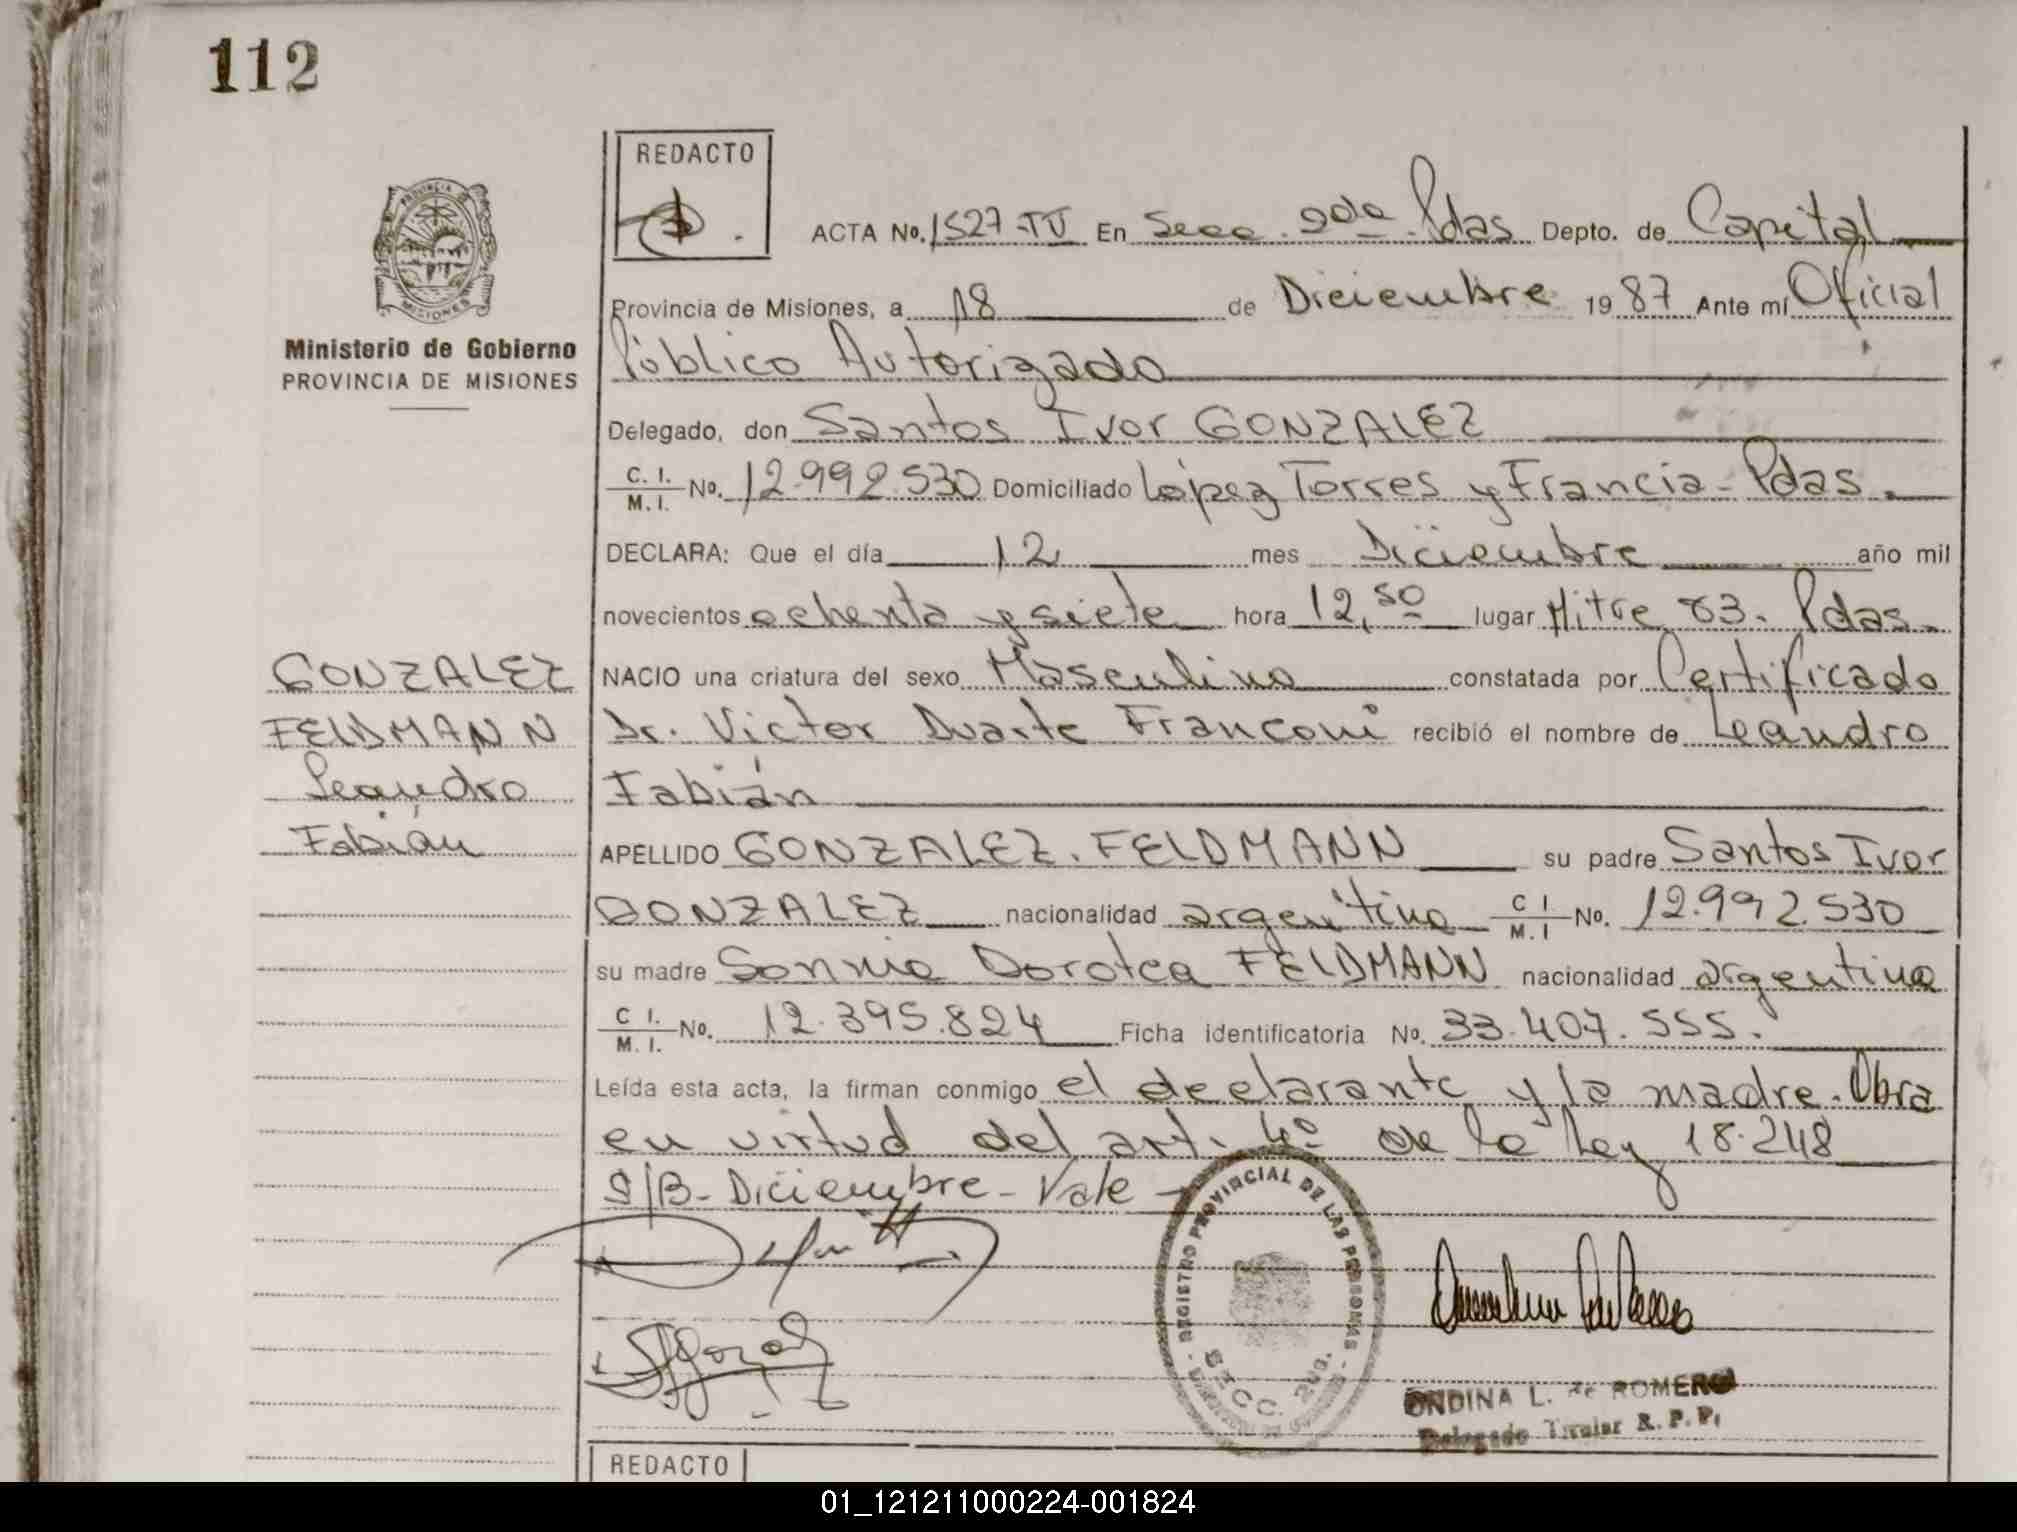 112
REDACTO
ACTA No. 1527-TV En Secc. 2da Pdas Depto. de Capital
Provincia de Misiones, a 18 de Diciembre 1987 Ante mí Oficial
Público Autorizado
Ministerio de Gobierno
PROVINCIA DE MISIONES
Delegado, don Santos Ivor GONZALEZ
C. I. / M. I. No. 12.992.530 Domiciliado López Torres y Francia - Pdas.
DECLARA: Que el día 12 mes Diciembre año mil
novecientos ochenta y siete hora 12,50 lugar Mitre 83. Pdas.
NACIO una criatura del sexo Masculino constatada por Certificado
Dr. Victor Duarte Franconi recibió el nombre de Leandro
Fabián
GONZALEZ
FELDMANN
Leandro
Fabián
APELLIDO GONZALEZ. FELDMANN su padre Santos Ivor
GONZALEZ nacionalidad argentina C I. / M. I No. 12.992.530
su madre Sonnia Dorotea FELDMANN nacionalidad argentina
C I. / M. I. No. 12.395.824 Ficha identificatoria No. 33.407.555.
Leída esta acta, la firman conmigo el declarante y la madre. Obra
en virtud del art. 4º de la Ley 18.248
S/B- Diciembre - Vale -
REGISTRO PROVINCIAL DE LAS PERSONAS
SECC. 2da.
ONDINA L. de ROMERO
Delegado Titular R. P. P.
REDACTO
01_121211000224-001824